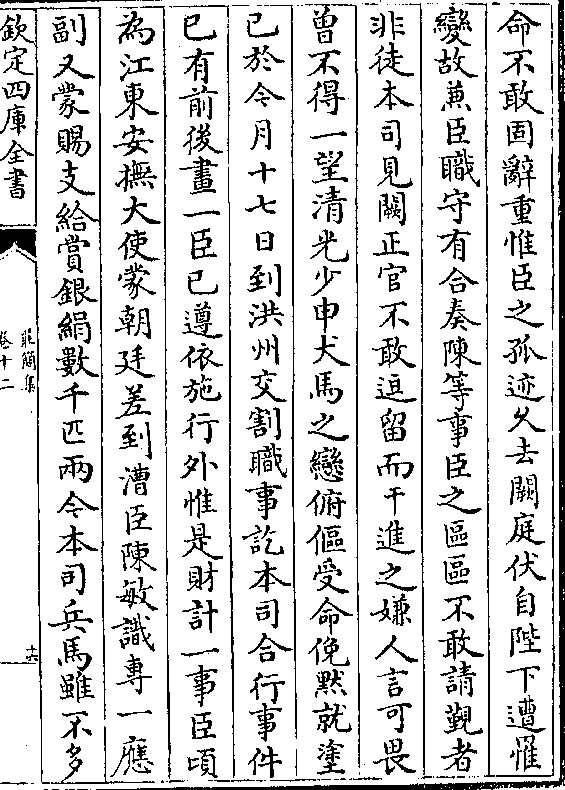 命不敢固辭重惟臣之孤迹久去闕庭伏自陛下遭罹
變故兼臣職守有合奏陳等事臣之區區不敢請覲者
非徒本司見闕正官不敢逗留而干進之嫌人言可畏
曾不得一望清光少申犬馬之戀俯傴受命俛黙就塗
已於今月十七日到洪州交割職事訖本司合行事件
已有前後畫一臣已遵依施行外惟是財計一事臣頃
為江東安撫大使蒙朝廷差到漕臣陳敏識專一應
副又蒙賜支給賞銀絹數千匹兩今本司兵馬雖不多
欽定四庫全書
莊簡集
卷十二
十六